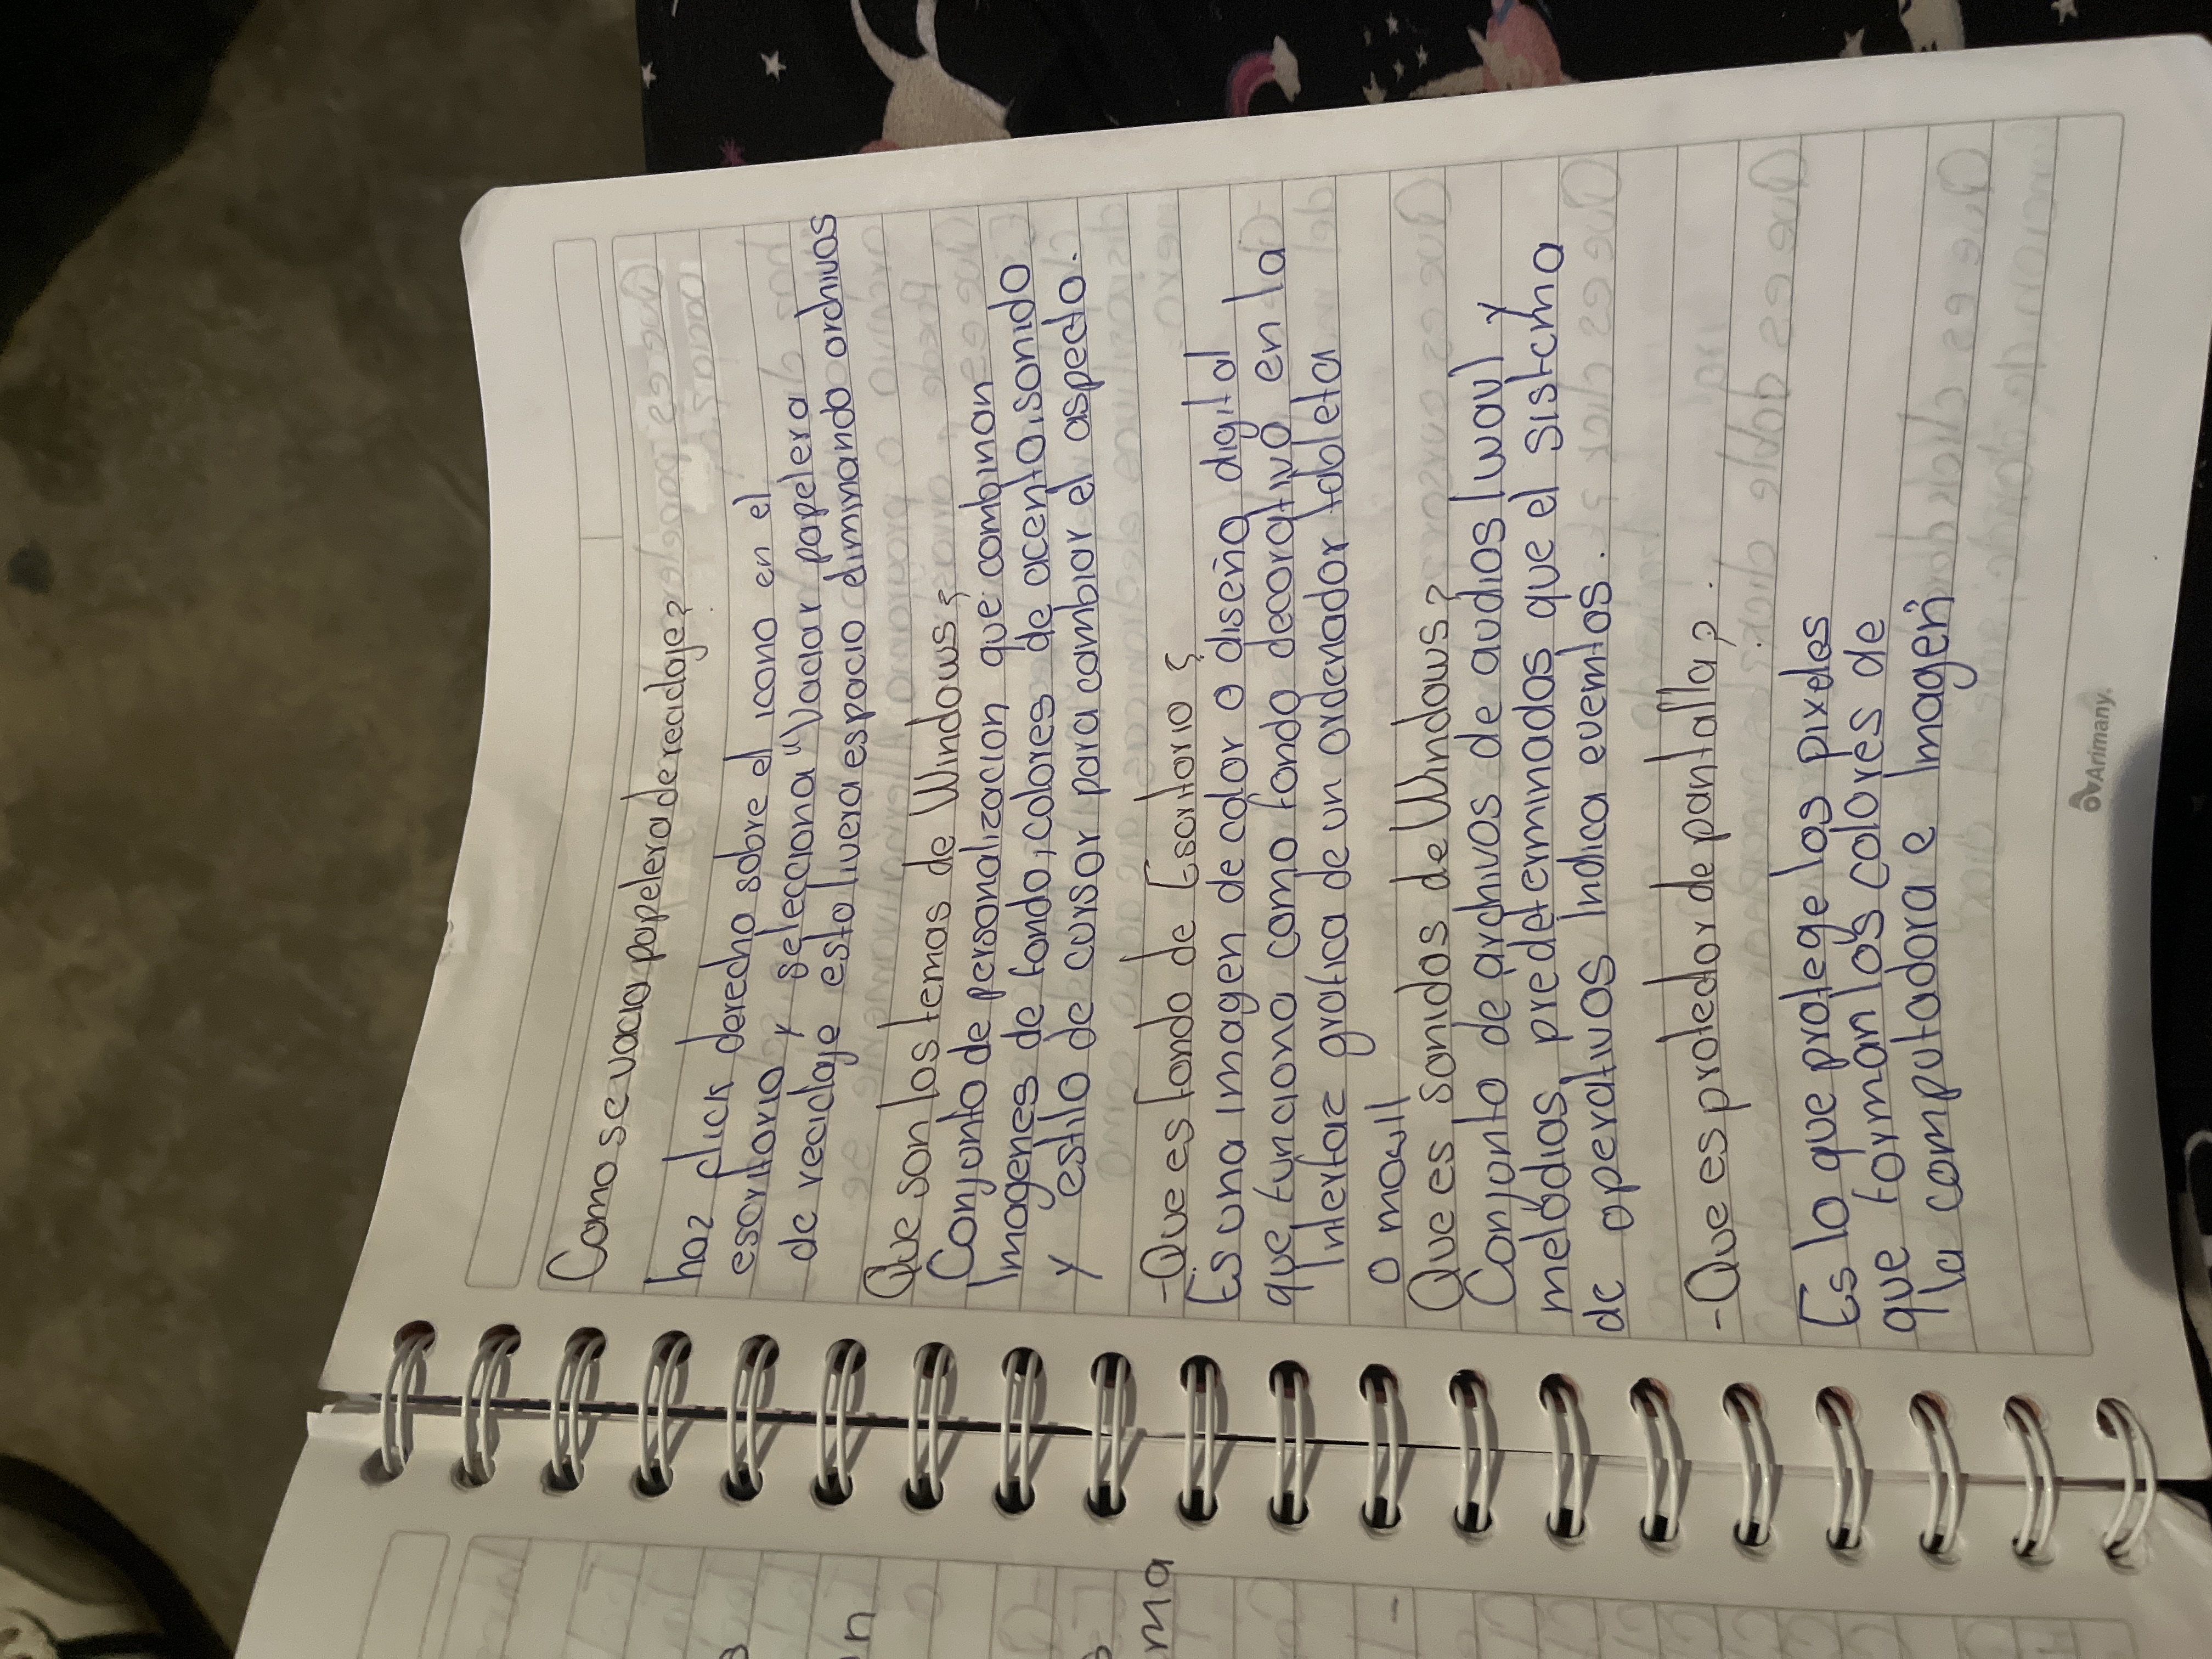 Como se vacia papelera de reciclaje?
haz click derecho sobre el icono en el
escritorio y selecciona "Vaciar papelera
de reciclaje esto livera espacio eliminando archivos
Que son los temas de Windows?
Conjunto de personalizacion que combinan
Imagenes de fondo, colores de acento, sonido
y estilo de cursor para cambiar el aspecto.
-Que es fondo de Escritorio?
Es una imagen de color o diseño digital
que funciona como fondo decorativo en la
Interfaz grafica de un ordenador tableta
o movil
Que es sonidos de Windows?
Conjunto de archivos de audios (wav) y
melodias predeterminados que el sistema
de operativos Indica eventos.
-Que es protector de pantalla?
Es lo que protege los pixeles
que forman los colores de
la computadora e Imagen
Arimany.